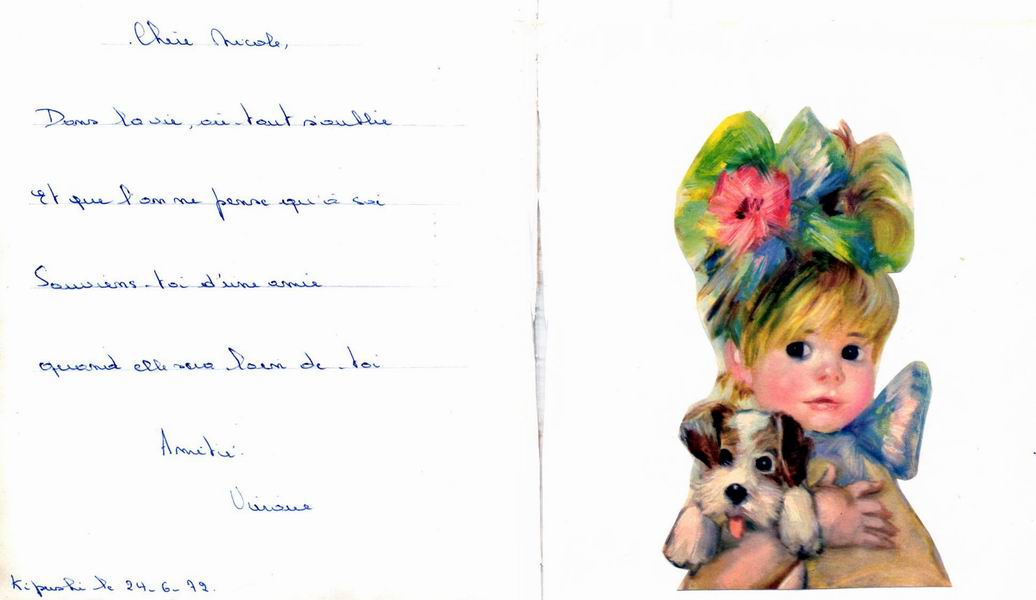 Chère Nicole,
Dans la vie, où tout s'oublie
Et que l'on ne pense qu'à soi
Souviens-toi d'une amie
quand elle sera loin de toi
Amitié.
Kipushi le 24-6-72.